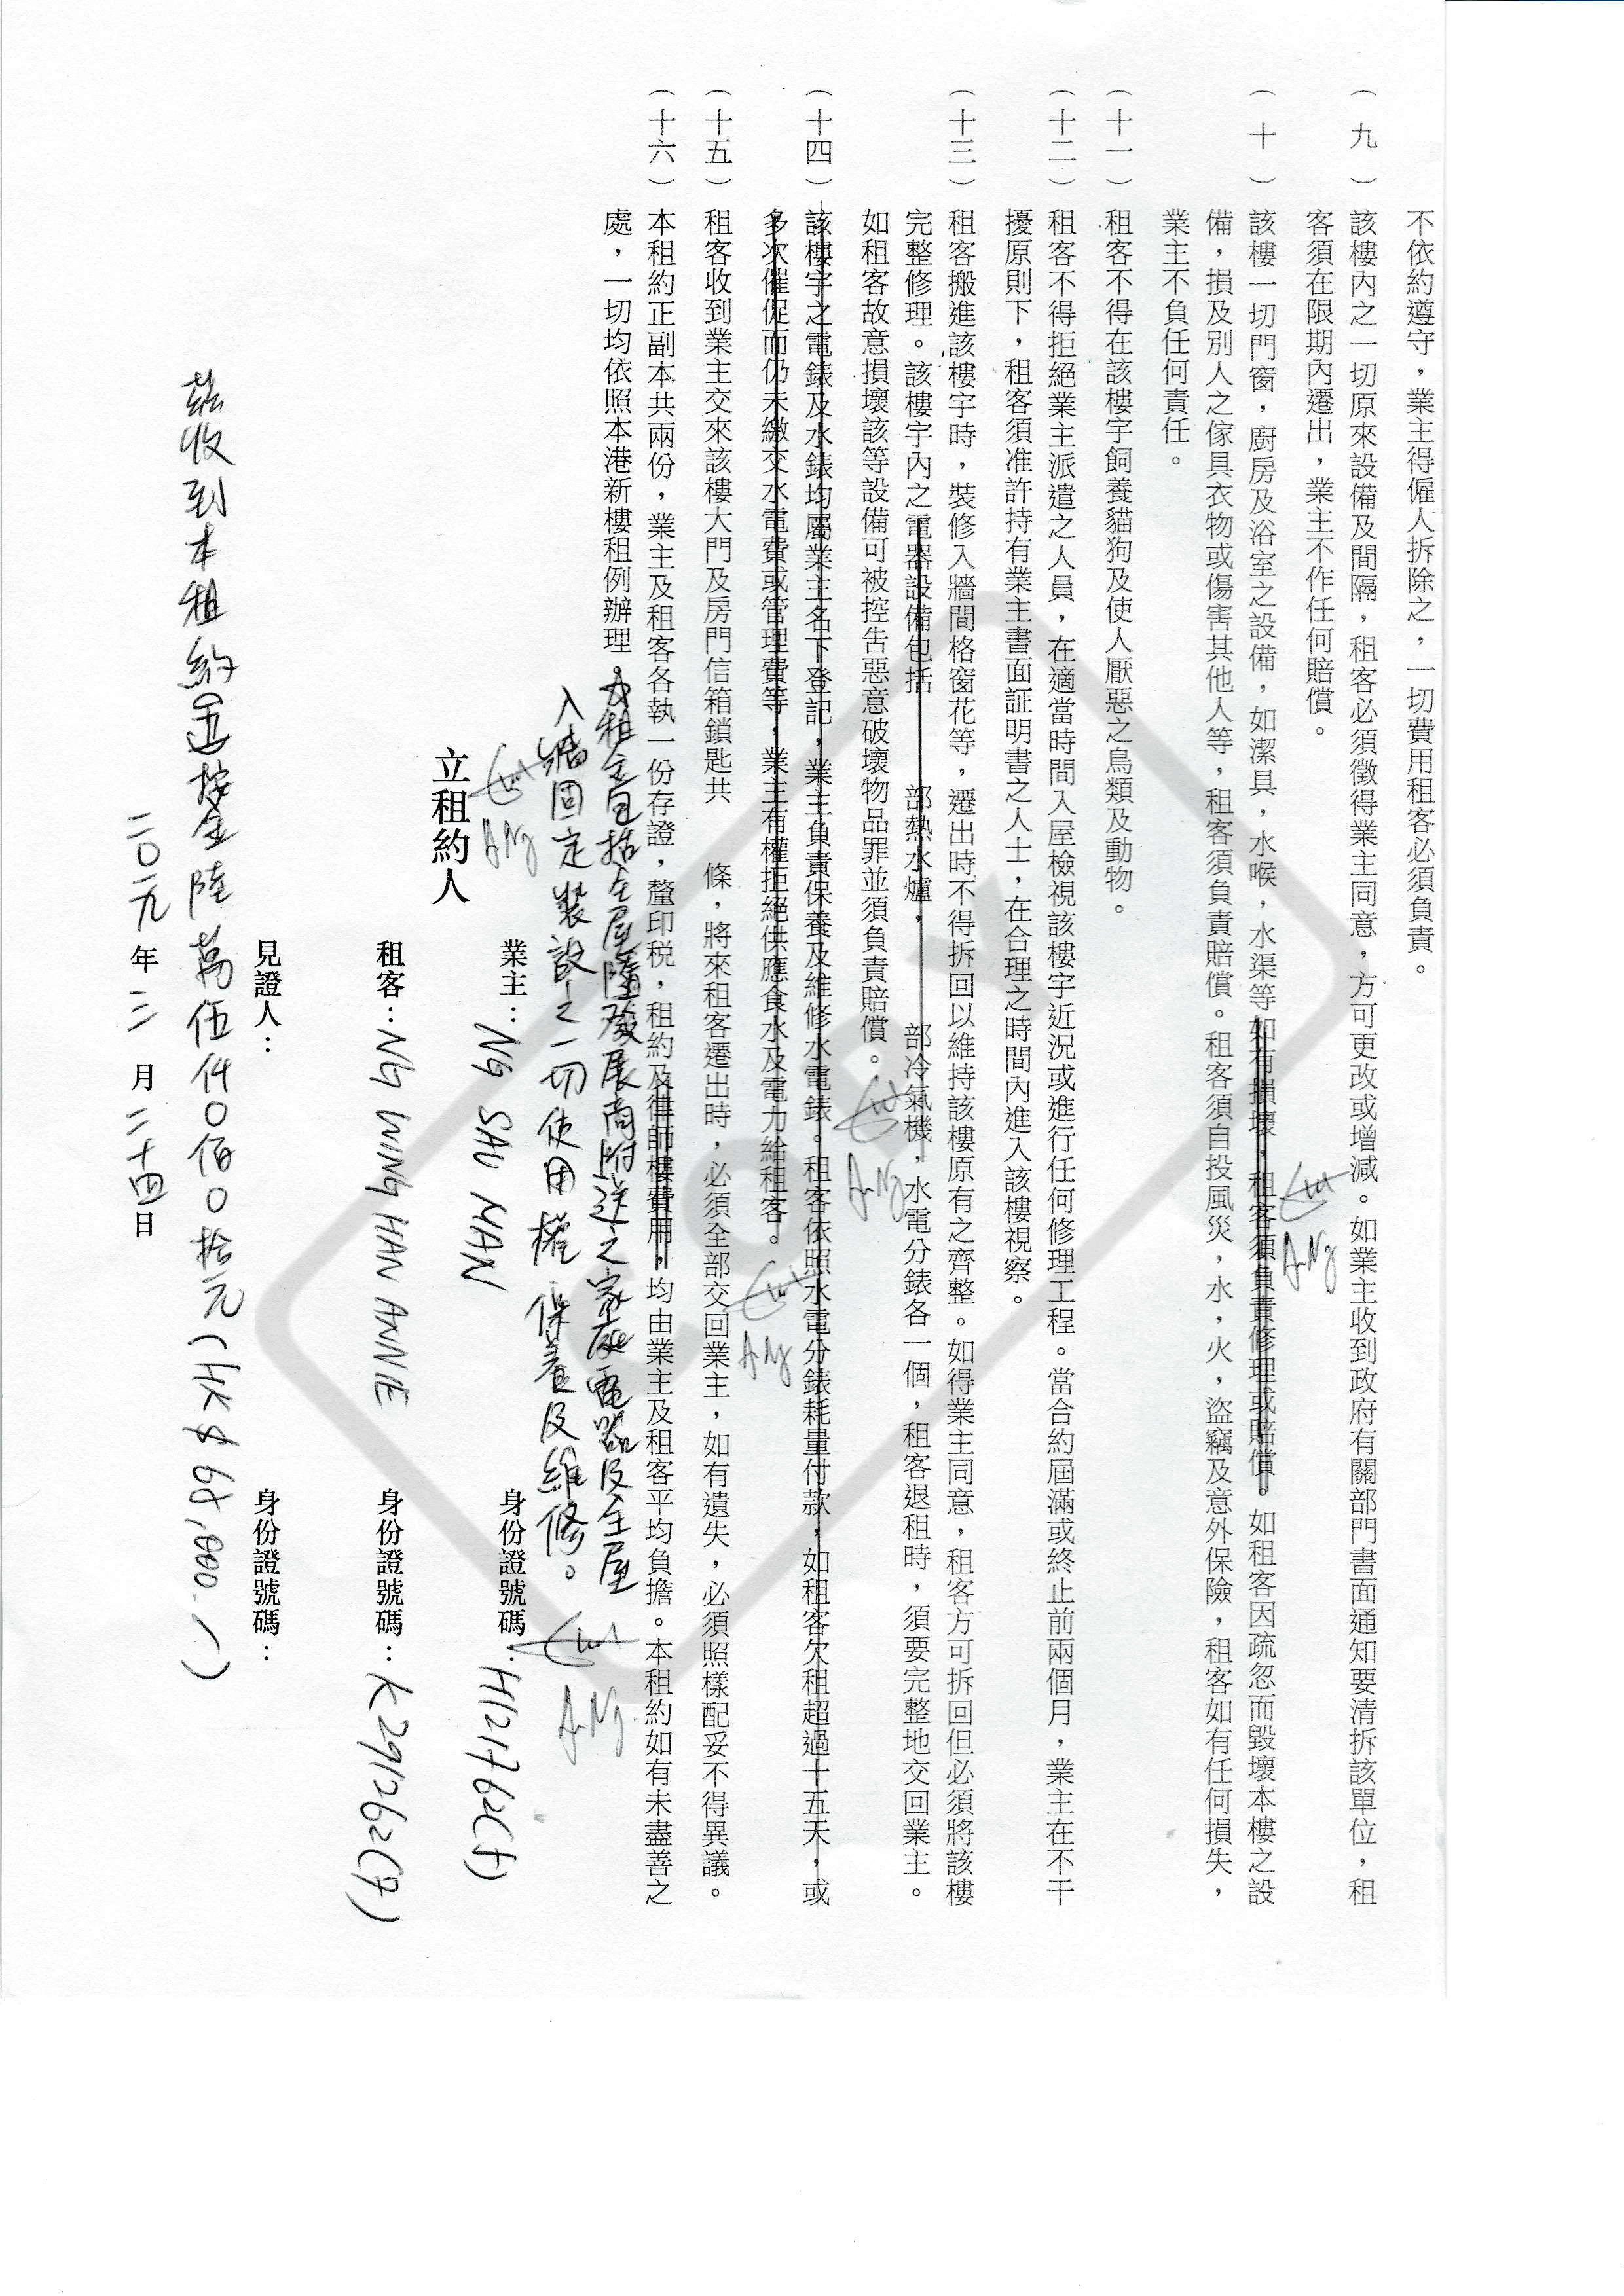 不依約遵守，業主得僱人拆除之，一切費用租客必須負責。
（九）該樓內之一切原來設備及間隔，租客必須徵得業主同意，方可更改或增減。如業主收到政府有關部門書面通知要清拆該單位，租
客須在限期內遷出，業主不作任何賠償。
（十）該樓一切門窗，廚房及浴室之設備，如潔具，水喉，水渠等如有損壞，租客須負責修理或賠償。如租客因疏忽而毀壞本樓之設
備，損及別人之傢具衣物或傷害其他人等，租客須負責賠償。租客須自投風災，水，火，盜竊及意外保險，租客如有任何損失，
業主不負任何責任。
（十一）租客不得在該樓宇飼養貓狗及使人厭惡之鳥類及動物。
（十二）租客不得拒絕業主派遣之人員，在適當時間入屋檢視該樓宇近況或進行任何修理工程。當合約屆滿或終止前兩個月，業主在不干
擾原則下，租客須准許持有業主書面証明書之人士，在合理之時間內進入該樓視察。
（十三）租客搬進該樓宇時，裝修入牆間格窗花等，遷出時不得拆回以維持該樓原有之齊整。如得業主同意，租客方可拆回但必須將該樓
完整修理。該樓宇內之電器設備包括 部熱水爐， 部冷氣機，水電分錶各一個，租客退租時，須要完整地交回業主。
如租客故意損壞該等設備可被控告惡意破壞物品罪並須負責賠償。
（十四）該樓宇之電錶及水錶均屬業主名下登記，業主負責保養及維修水電錶。租客依照水電分錶耗量付款，如租客欠租超過十五天，或
多次催促而仍未繳交水電費或管理費等，業主有權拒絕供應食水及電力給租客。
（十五）租客收到業主交來該樓大門及房門信箱鎖匙共 條，將來租客遷出時，必須全部交回業主，如有遺失，必須照樣配妥不得異議。
（十六）本租約正副本共兩份，業主及租客各執一份存證，釐印税，租約及律師樓費用，均由業主及租客平均負擔。本租約如有未盡善之
處，一切均依照本港新樓租例辦理。
租金包括全屋隨發展商附送之家庭電器及全屋
入牆固定裝設之一切使用權保養及維修。
A.Ng
立租約人
業主：NG SAU MAN 身份證號碼：H121762(5)
租客：NG WING HAN ANNIE 身份證號碼：K291262(7)
見證人： 身份證號碼：
茲收到本租約按金陸萬伍仟0佰0拾元(HK$65,000.-)
二0一九年二月二十四日
COPY